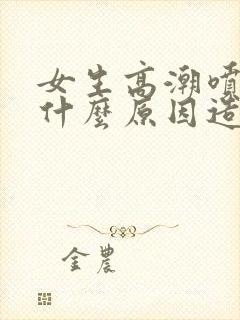 女生高潮噴
什麼原因造
金農